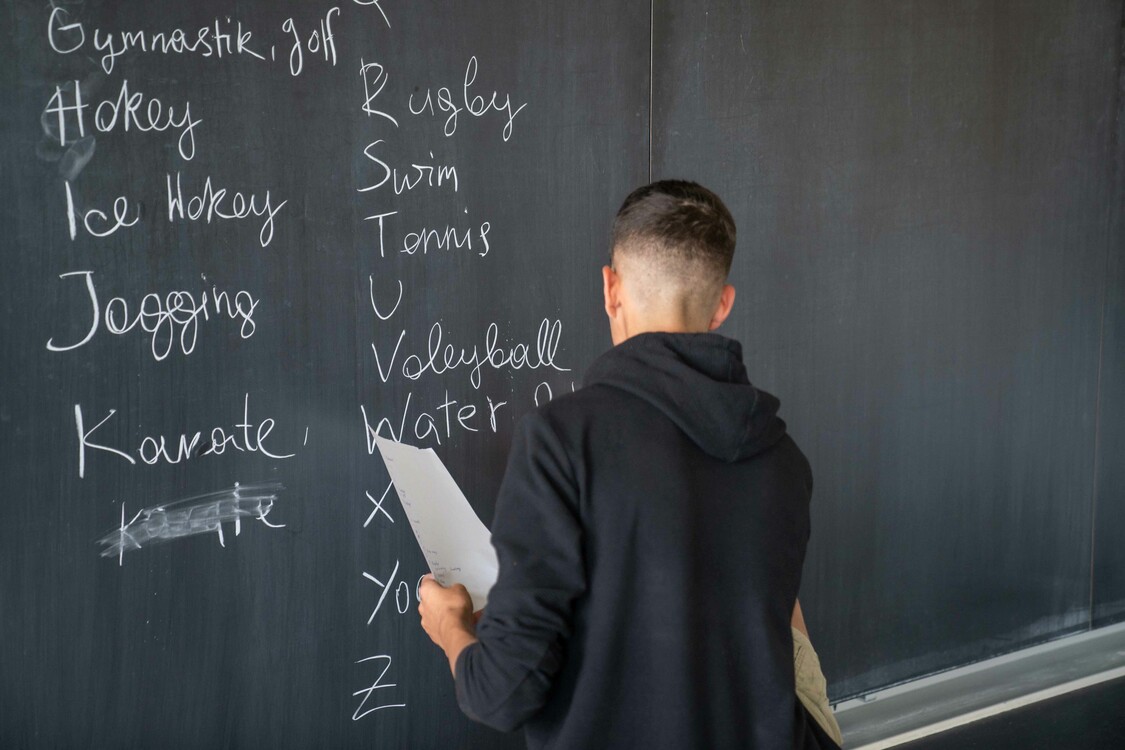 Gymnastik, golf
Hokey
Ice Hokey
Jogging
Karate,
Q
Rugby
Swim
Tennis
U
Voleyball
Water
X
Z